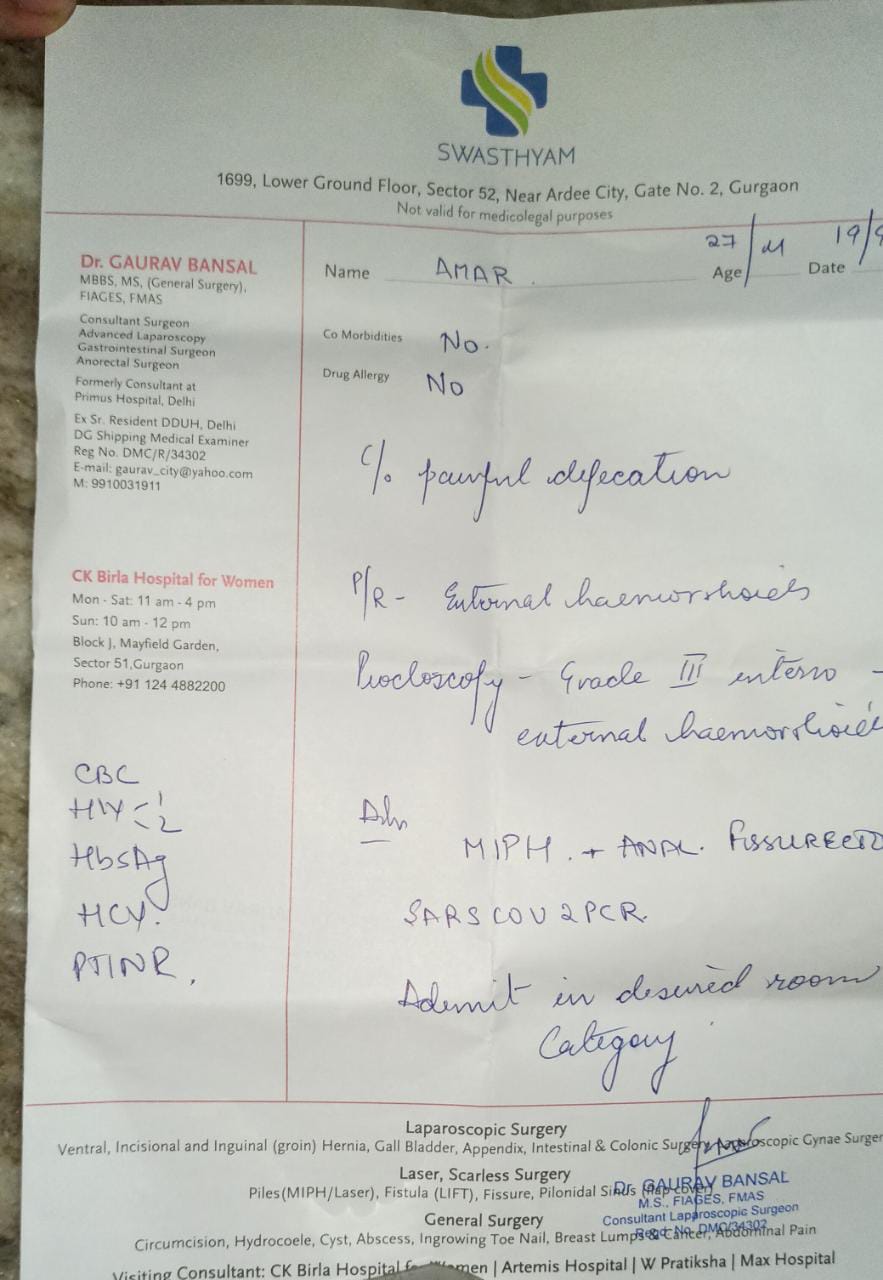 SWASTHYAM
1699, Lower Ground Floor, Sector 52, Near Ardee City, Gate No. 2, Gurgaon
Not valid for medicolegal purposes
Dr. GAURAV BANSAL
MBBS, MS, (General Surgery),
FIAGES, FMAS
Consultant Surgeon
Advanced Laparoscopy
Gastrointestinal Surgeon
Anorectal Surgeon
Formerly Consultant at
Primus Hospital, Delhi
Ex Sr. Resident DDUH, Delhi
DG Shipping Medical Examiner
Reg No. DMC/R/34302
E-mail: gaurav_city@yahoo.com
M: 9910031911
CK Birla Hospital for Women
Mon - Sat: 11 am - 4 pm
Sun: 10 am - 12 pm
Block J, Mayfield Garden,
Sector 51,Gurgaon
Phone: +91 124 4882200
CBC
HIV < 1 2
HbsAg
HCV.
PTINR,
Name AMAR. Age 27/M Date 19/9
Co Morbidities No.
Drug Allergy No
C/o painful defecation
P/R - External haemorrhoids
Proctoscopy - Grade III interno -
external haemorrhoid
Adv
MIPH. + ANAL. FISSURECTO
SARS COV 2 PCR.
Admit in desired room
Category
Laparoscopic Surgery
Ventral, Incisional and Inguinal (groin) Hernia, Gall Bladder, Appendix, Intestinal & Colonic Surgery, Laparoscopic Gynae Surger
Laser, Scarless Surgery
Piles(MIPH/Laser), Fistula (LIFT), Fissure, Pilonidal Sinus (flap cover)
General Surgery
Circumcision, Hydrocele, Cyst, Abscess, Ingrowing Toe Nail, Breast Lumps & Cancer, Abdominal Pain
Dr. GAURAV BANSAL
M.S., FIAGES, FMAS
Consultant Laparoscopic Surgeon
Regd No. DMC/34302
Visiting Consultant: CK Birla Hospital for Women | Artemis Hospital | W Pratiksha | Max Hospital